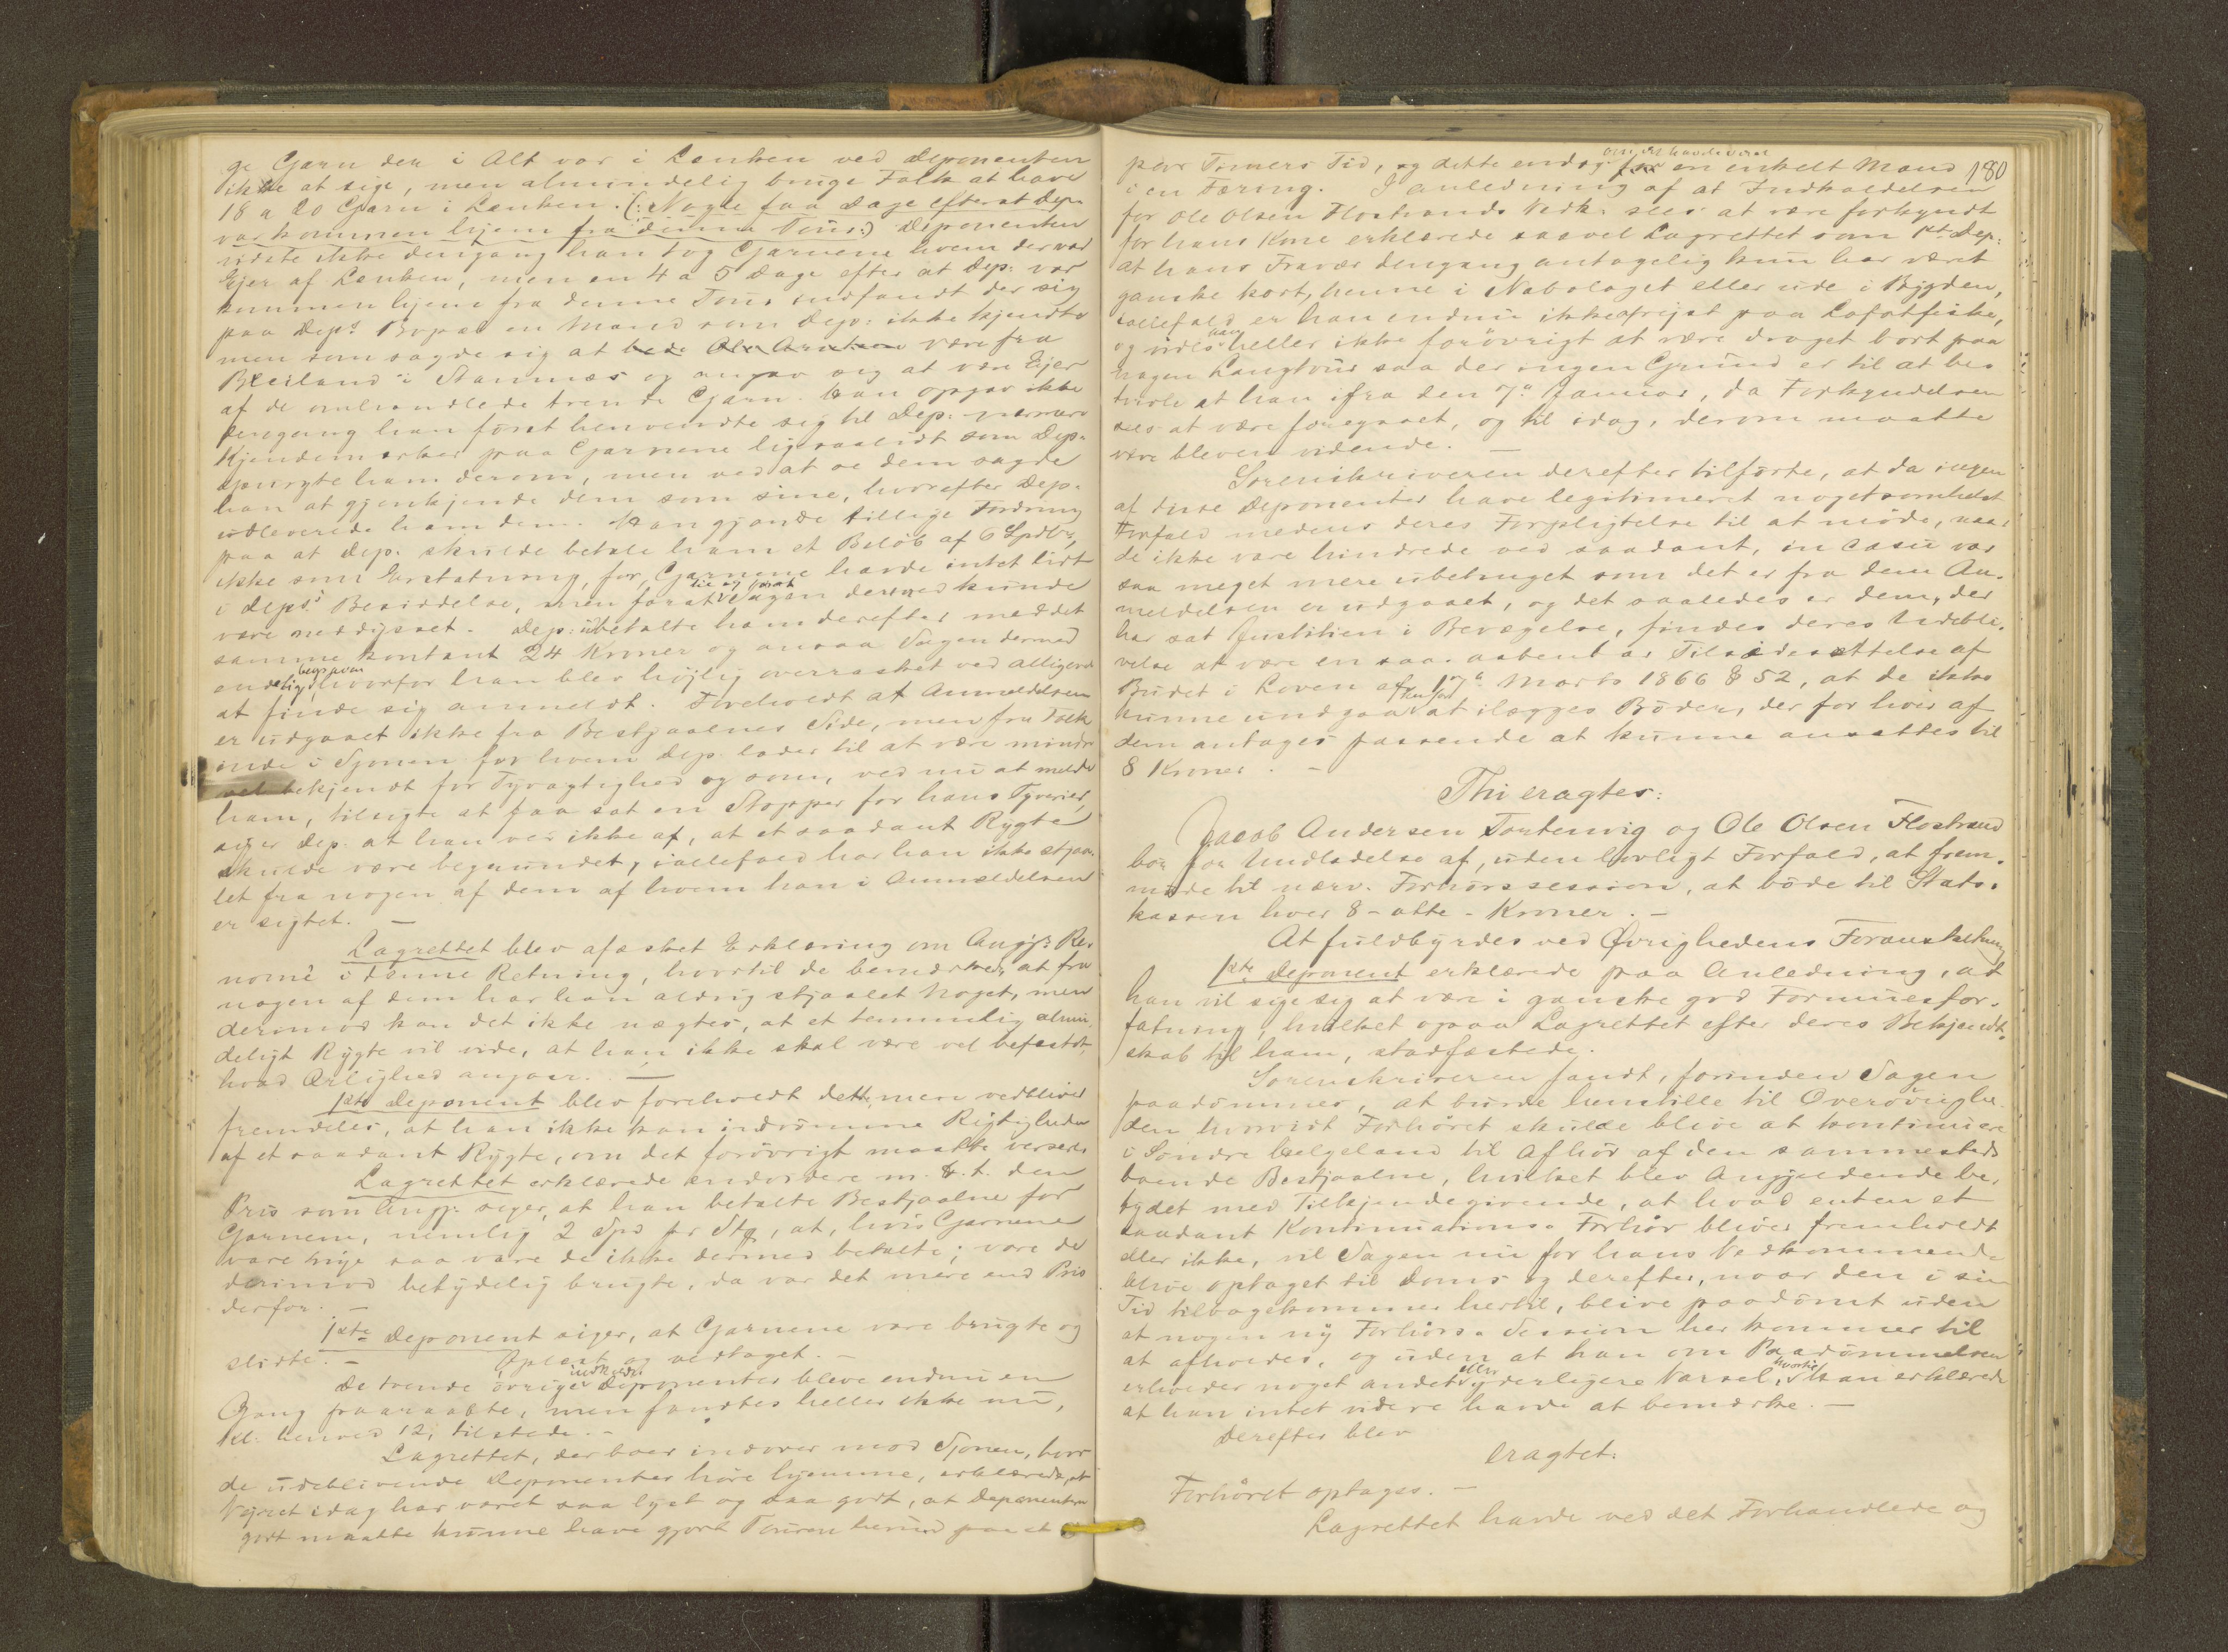 ge Garn der i Alt var i Lænken ved Deponenten
ikke at sige, men almindelig bruge Folk at have
18 a 20 Garn i Lænken. (: Nogle faa Dage efter at Dep.
var kommen hjem fra denne Tour:) Deponenten
vidste ikke dengang han tog Garnene hvem der var
Ejer af Lænken, men en 4 a 5 Dage efter at Dep: var
kommen hjem fra denne Tour indfandt der sig
paa Deps Bopæl en Mand som Dep: ikke kjendte
men som sagde sig at være fra
Beiland i Stamnæs og angav sig at være Ejer
af de omhandlede trende Garn. Han opgav ikke
dengang han først henvendte sig til Dep: nærmere
Kjendemærker paa Garnene ligesaalidt som Dep.
spurgte ham derom, men ved at se dem sagde
han at gjenkjende dem som sine, hvorefter Dep.
udleverede ham dem. Han gjorde tillige Fordring
paa at Dep. skulde betale ham et Beløb af 6 Spdlr,
ikke som Erstatning, for Garnene havde intet lidt
i Deps Besiddelse, men for at Sagen dermed kunde
være neddysset. Dep: ubetalte ham derefter med det
samme kontant 24 Kroner og ansaa Sagen dermed
endelig begraven hvorfor han blev høilig overrasket ved alligevel
at finde sig anmeldt. Foreholdt at Anmeldelsen
er udgaaet ikke fra Bestjaalnes Side, men fra Folk
inde i Sjonen for hvem Dep. lader til at være mindre
vel bekjendt for Tyvagtighed og som, ved nu at melde
ham, tilsigte at faa sat en Stopper for hans Tyverier,
siger Dep. at han ved ikke af, at et saadant Rygte
skulde være begrundet, iallefald har han ikke stjaa-
let fra nogen af dem af hvem han i Anmeldelsen
er sigtet. —
Lagrettet blev afæsket Erklæring om Angjs Re-
nomé i denne Retning, hvortil de bemærkede, at fra
nogen af dem har han aldrig stjaalet Noget, men
derimod kan det ikke nægtes, at et temmelig almin-
deligt Rygte vil vide, at han ikke skal være vel befæstet,
hvad Ærlighed angaar. —
1ste Deponent blev foreholdt dette, men vedbliver
fremdeles, at han ikke kan indrømme Rigtigheden
af et saadant Rygte, om det forøvrigt maatte versere.
Lagrettet erklærede endvidere m. H. t. den
Pris som Angj: siger, at han betalte Bestjaalne for
Garnene, nemlig 2 Spd pr Stk, at, hvis Garnene
vare nye saa vare de ikke dermed betalte; vare de
derimod betydelig brugte, da var det mere end Pris
derfor. —
1ste Deponent siger, at Garnene vare brugte og
slidte. — Oplæst og vedtaget. —
De trende øvrige indkaldte Deponenter bleve endnu en
Gang paaraabte, men fandtes heller ikke nu,
Kl: henved 12, tilstede. —
Lagrettet, der boer indover mod Sjonen, hvor
de udeblivende Deponenter høre hjemme, erklærede, at
Vejret idag har været saa lyst og saa godt, at Deponenterne
godt maatte kunne have gjort Touren herud paa et
180
par Timers Tid, og dette endog om det havde været en enkelt Mand
i en Færing. I Anledning af at Indkaldelsen
for Ole Olsen Flostrands Vedk. sees at være forkyndt
for hans Kone erklærede saavel Lagrettet som 1ste Dep:
at hans Fravær dengang antagelig kun har været
ganske kort, henne i Nabolaget eller ude i Bygden,
iallefald er han endnu ikke afrejst paa Lofotfiske,
og vides han heller ikke forøvrigt at være draget bort paa
nogen Langtour saa der ingen Grund er til at be-
tvivle at han ifra den 7de Januar, da Forkyndelsen
sees at være foregaaet, og til idag, derom maatte
være bleven vidende. —
Sorenskriveren derefter tilførte, at da ingen
af disse Deponenter have legitimeret nogetsomhelst
Forfald medens deres Forpligtelse til at møde, naar
de ikke vare hindrede ved saadant, in casu var
saa meget mere ubetinget som det er fra dem An-
meldelsen er udgaaet, og det saaledes er dem, der
har sat Justitien i Bevægelse, findes deres Udebli-
velse at være en saa aabenbar Tilsidesættelse af
Budet i Loven af 17de Marts 1866 § 52, at de ikke
kunne undgaa herfor at ilægges Bøder, der for hver af
dem antages passende at kunne ansættes til
8 Kroner. —
Thi eragtes:
Jacob Andersen Tortenvig og Ole Olsen Flostrand
bør for Undladelse af, uden lovligt Forfald, at frem-
møde til nærv. Forhørssession, at bøde til Stats-
kassen hver 8 - otte - Kroner. —
At fuldbyrdes ved Øvrighedens Foranstaltning
1ste Deponent erklærede paa Anledning, at
han vil sige sig at være i ganske god Formuesfor-
fatning, hvilket ogsaa Lagrettet efter deres Bekjendt-
skab til ham, stadfæstede.
Sorenskriveren fandt, forinden Sagen
paadømmes, at burde henstille til Overøvrighe-
den hvorvidt Forhøret skulde blive at kontinuere
i Søndre Helgeland til Afhør af den sammesteds
boende Bestjaalne, hvilket blev Angjældende be-
tydet med Tilkjendegivende, at hvad enten et
saadant Kontinuations-Forhør bliver fremholdt
eller ikke, vil Sagen nu for hans Vedkommende
blive optaget til Doms og derefter, naar den i sin
Tid tilbagekommer hertil, blive paadømt uden
at nogen ny Forhørs-Session her kommer til
at afholdes, og uden at han om Paadømmelsen
erholder noget andet eller yderligere Varsel, hvortil han erklærede
at han intet videre havde at bemærke. —
Derefter blev
eragtet:
Forhøret optages. —
Lagrettet havde ved det Forhandlede og